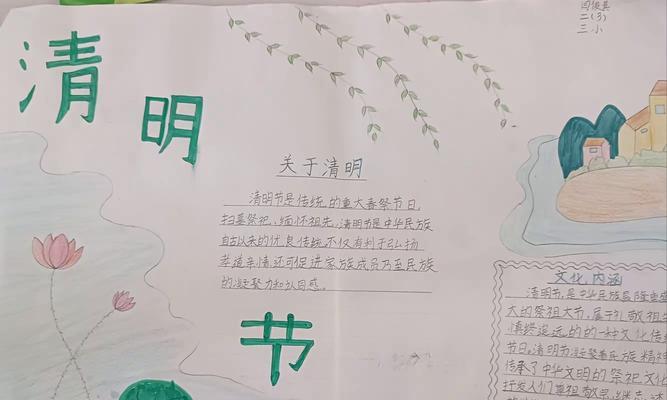 清
明
节
二(3)
三小
关于清明
清明节是传统的重大春祭节日,
扫墓祭祀、缅怀祖先,清明节是中华民族
自古以来的优良传统不仅有利于弘扬
孝道亲情还可促进家族成员乃至民族
的凝聚力和认同感。
文化内涵
清明节,是中华民族最隆重
大的祭祖大节,属于礼敬祖
慎终追远的的一种文化传
节日。清明节凝聚着民族精神
传承了中华文明的祭祀文化
抒发人们尊祖敬宗、继志